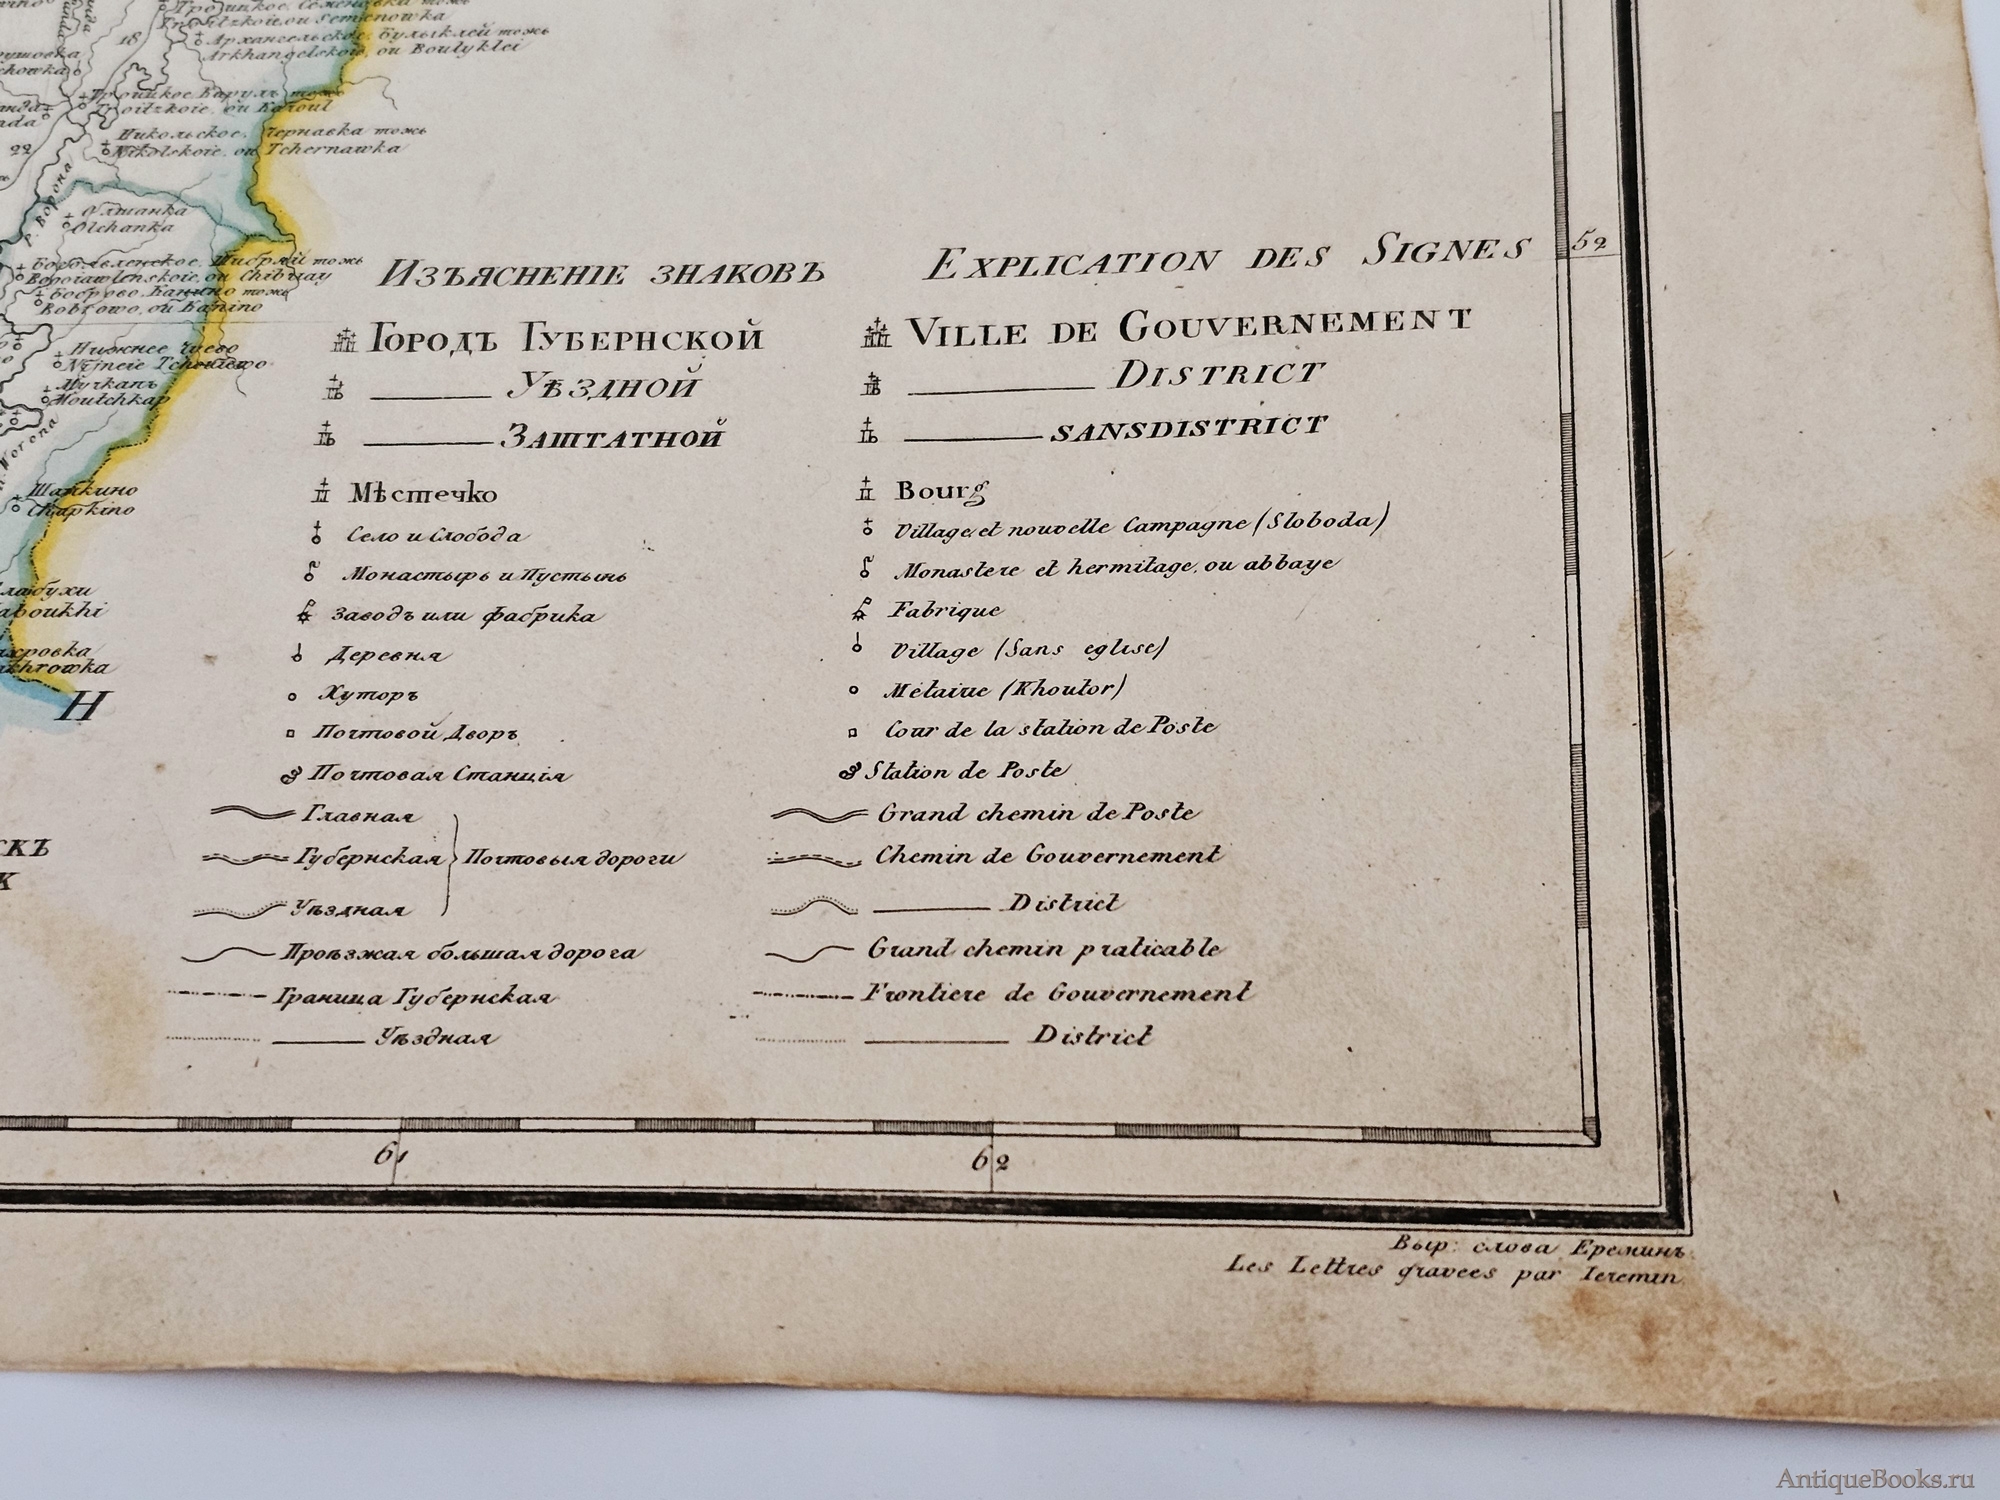 Троицкое, Семеновка тожъ
Troitzkoie, ou Semenowka
18
Архангельское, Булыклей тожъ
Arkhangelskoie, ou Boulyklei
Троицкое Караулъ тожъ
Troitzkoie, ou Karoul
Никольское, Чернавка тожъ
22
Nikolskoie, ou Tchernawka
р. Ворона
Олшанка
Olchanka
Богоявленское, Шибряй тожъ
Bogoiawlenskoie, ou Chibriay
Боброво, Канино тожъ
Bobrowo, ou Kanino
Нижнее Чуево
Nijneie Tchouiewo
Мучкапъ
Moutchkap
Worona
Шапкино
Chapkino
лабухи
aboukhi
ахровка
akhrowka
Н
скъ
к
Изъясненіе знаковъ
Городъ Губернской
Уѣздной
Заштатной
Мѣстечко
Село и Слобода
Монастырь и Пустынь
Заводъ или фабрика
Деревня
Хуторъ
Почтовой Дворъ
Почтовая Станція
Главная
Губернская
Уѣздная
Почтовыя дороги
Проѣзжая большая дорога
Граница Губернская
Уѣздная
Explication des Signes
Ville de Gouvernement
District
sansdistrict
Bourg
Village et nouvelle Campagne (Sloboda)
Monastere et hermitage, ou abbaye
Fabrique
Village (Sans eglise)
Métairie (Khoutor)
Cour de la station de Poste
Station de Poste
Grand chemin de Poste
Chemin de Gouvernement
District
Grand chemin praticable
Frontiere de Gouvernement
District
52
61
62
Выр: слова Ереминъ.
Les Lettres gravees par Ieremin.
AntiqueBooks.ru